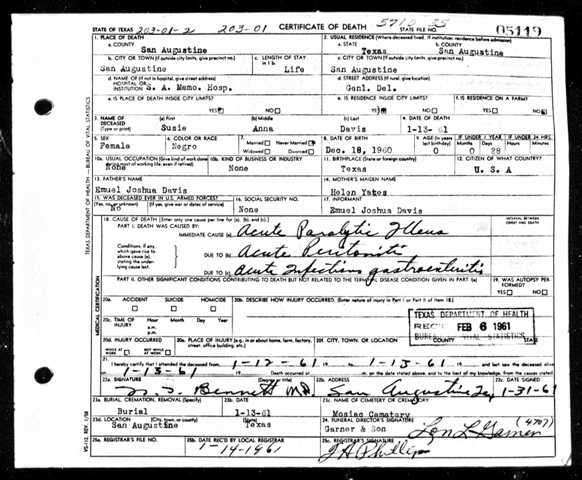 STATE OF TEXAS 203-01-2 203-01 CERTIFICATE OF DEATH 5710 35 STATE FILE NO. 05119
1. PLACE OF DEATH 2. USUAL RESIDENCE (Where deceased lived. If institution: residence before admission)
a. COUNTY San Augustine a. STATE Texas b. COUNTY San Augustine
b. CITY OR TOWN (If outside city limits, give precinct no.) c. LENGTH OF STAY in 1 b. c. CITY OR TOWN (If outside city limits, give precinct no.)
San Augustine Life San Augustine
d. NAME OF (If not in hospital, give street address) HOSPITAL OR INSTITUTION S. A. Memo. Hosp. d. STREET ADDRESS (If rural, give location) Genl. Del.
e. IS PLACE OF DEATH INSIDE CITY LIMITS? YES NO e. IS RESIDENCE INSIDE CITY LIMITS? YES NO f. IS RESIDENCE ON A FARM? YES NO
3. NAME OF DECEASED (Type or print) (a) First Susie (b) Middle Anna (c) Last Davis 4. DATE OF DEATH 1-13-61
5. SEX Female 6. COLOR OR RACE Negro 7. Married Never Married Widowed Divorced 8. DATE OF BIRTH Dec. 18, 1960 9. AGE (In years last birthday) 0 IF UNDER 1 YEAR 0 28 IF UNDER 24 HRS.
10a. USUAL OCCUPATION (Give kind of work done during most of working life, even if retired) None 10b. KIND OF BUSINESS OR INDUSTRY None 11. BIRTHPLACE (State or foreign country) Texas 12. CITIZEN OF WHAT COUNTRY? U. S. A
13. FATHER'S NAME Emuel Joshua Davis 14. MOTHER'S MAIDEN NAME Helen Yates
15. WAS DECEASED EVER IN U.S. ARMED FORCES? (Yes, no, or unknown) (If yes, give war or dates of service) No 16. SOCIAL SECURITY NO. None 17. INFORMANT Emuel Joshua Davis
18. CAUSE OF DEATH [Enter only one cause per line for (a), (b), and (c).] INTERVAL BETWEEN ONSET AND DEATH
PART I. DEATH WAS CAUSED BY: IMMEDIATE CAUSE (a) Acute Paralytic Ileus
Conditions, if any, which gave rise to above cause (a), stating the underlying cause last. DUE TO (b) Acute Peritonitis
DUE TO (c) Acute Infectious gastroenteritis
PART II. OTHER SIGNIFICANT CONDITIONS CONTRIBUTING TO DEATH BUT NOT RELATED TO THE TERMINAL DISEASE CONDITION GIVEN IN PART I (a) 19. WAS AUTOPSY PERFORMED? YES NO
20a. ACCIDENT SUICIDE HOMICIDE 20b. DESCRIBE HOW INJURY OCCURRED. (Enter nature of injury in Part I or Part II of item 18.)
20c. TIME OF INJURY Hour Month Day Year a.m. p.m.
TEXAS DEPARTMENT OF HEALTH
REC'D FEB 6 1961
BUREAU VITAL STATISTICS
20d. INJURY OCCURRED WHILE AT WORK NOT WHILE AT WORK 20e. PLACE OF INJURY (e.g. in or about home, farm, factory, street, office building, etc.) 20f. CITY, TOWN, OR LOCATION COUNTY STATE
21. I hereby certify that I attended the deceased from 1-12-61 1-13-61 and last saw the deceased
1-13-61
22a. SIGNATURE Bennett M.D. 22b. ADDRESS San Augustine Tex 22c. DATE SIGNED 1-31-61
23a. BURIAL, CREMATION, REMOVAL (Specify) Burial 23b. DATE 1-13-61 23c. NAME OF CEMETERY OR CREMATORY Mosiac Cematary
23d. LOCATION (City, town, or county) (State) San Augustine Texas 24. FUNERAL DIRECTOR'S SIGNATURE Garner & Son Lon L Garner (4707)
25a. REGISTRAR'S FILE NO. 25b. DATE REC'D BY LOCAL REGISTRAR 1-14-1961 25c. REGISTRAR'S SIGNATURE J H Phillips
TEXAS DEPARTMENT OF HEALTH — BUREAU OF VITAL STATISTICS
MEDICAL CERTIFICATION